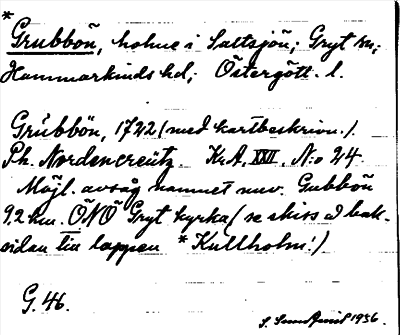 *
Grubbön, holme i Saltsjön; Gryt sn;
Hammarkinds hd; Östergötl. l.
Grubbön, 1722 (med kartbeskrivn.).
Ph. Nordencreutz. Kr.A. XXII. N:o 24.
Möjl. avsåg namnet nuv. Gubbön
9.2 km. ÖNÖ Gryt kyrka (se skiss å bak-
sidan till lappen *Kullholm!)
G. 46.
1936.